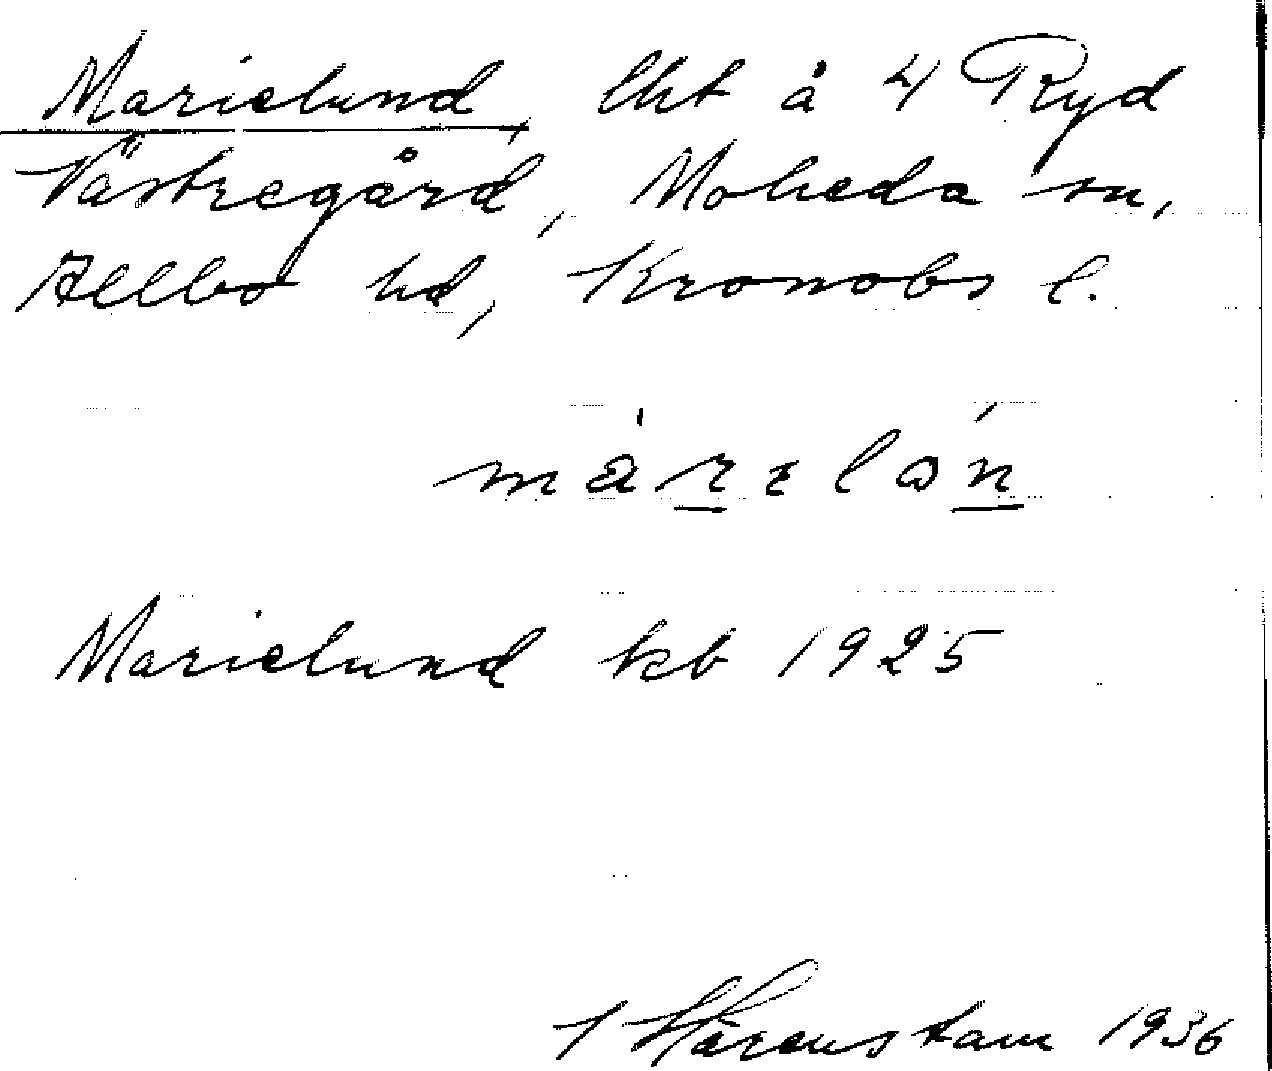 Marielund, lht å 4 Ryd
Västregård, Moheda sn,
Allbo hd, Kronobs l.
Marielund kb 1925
Härenstam 1936